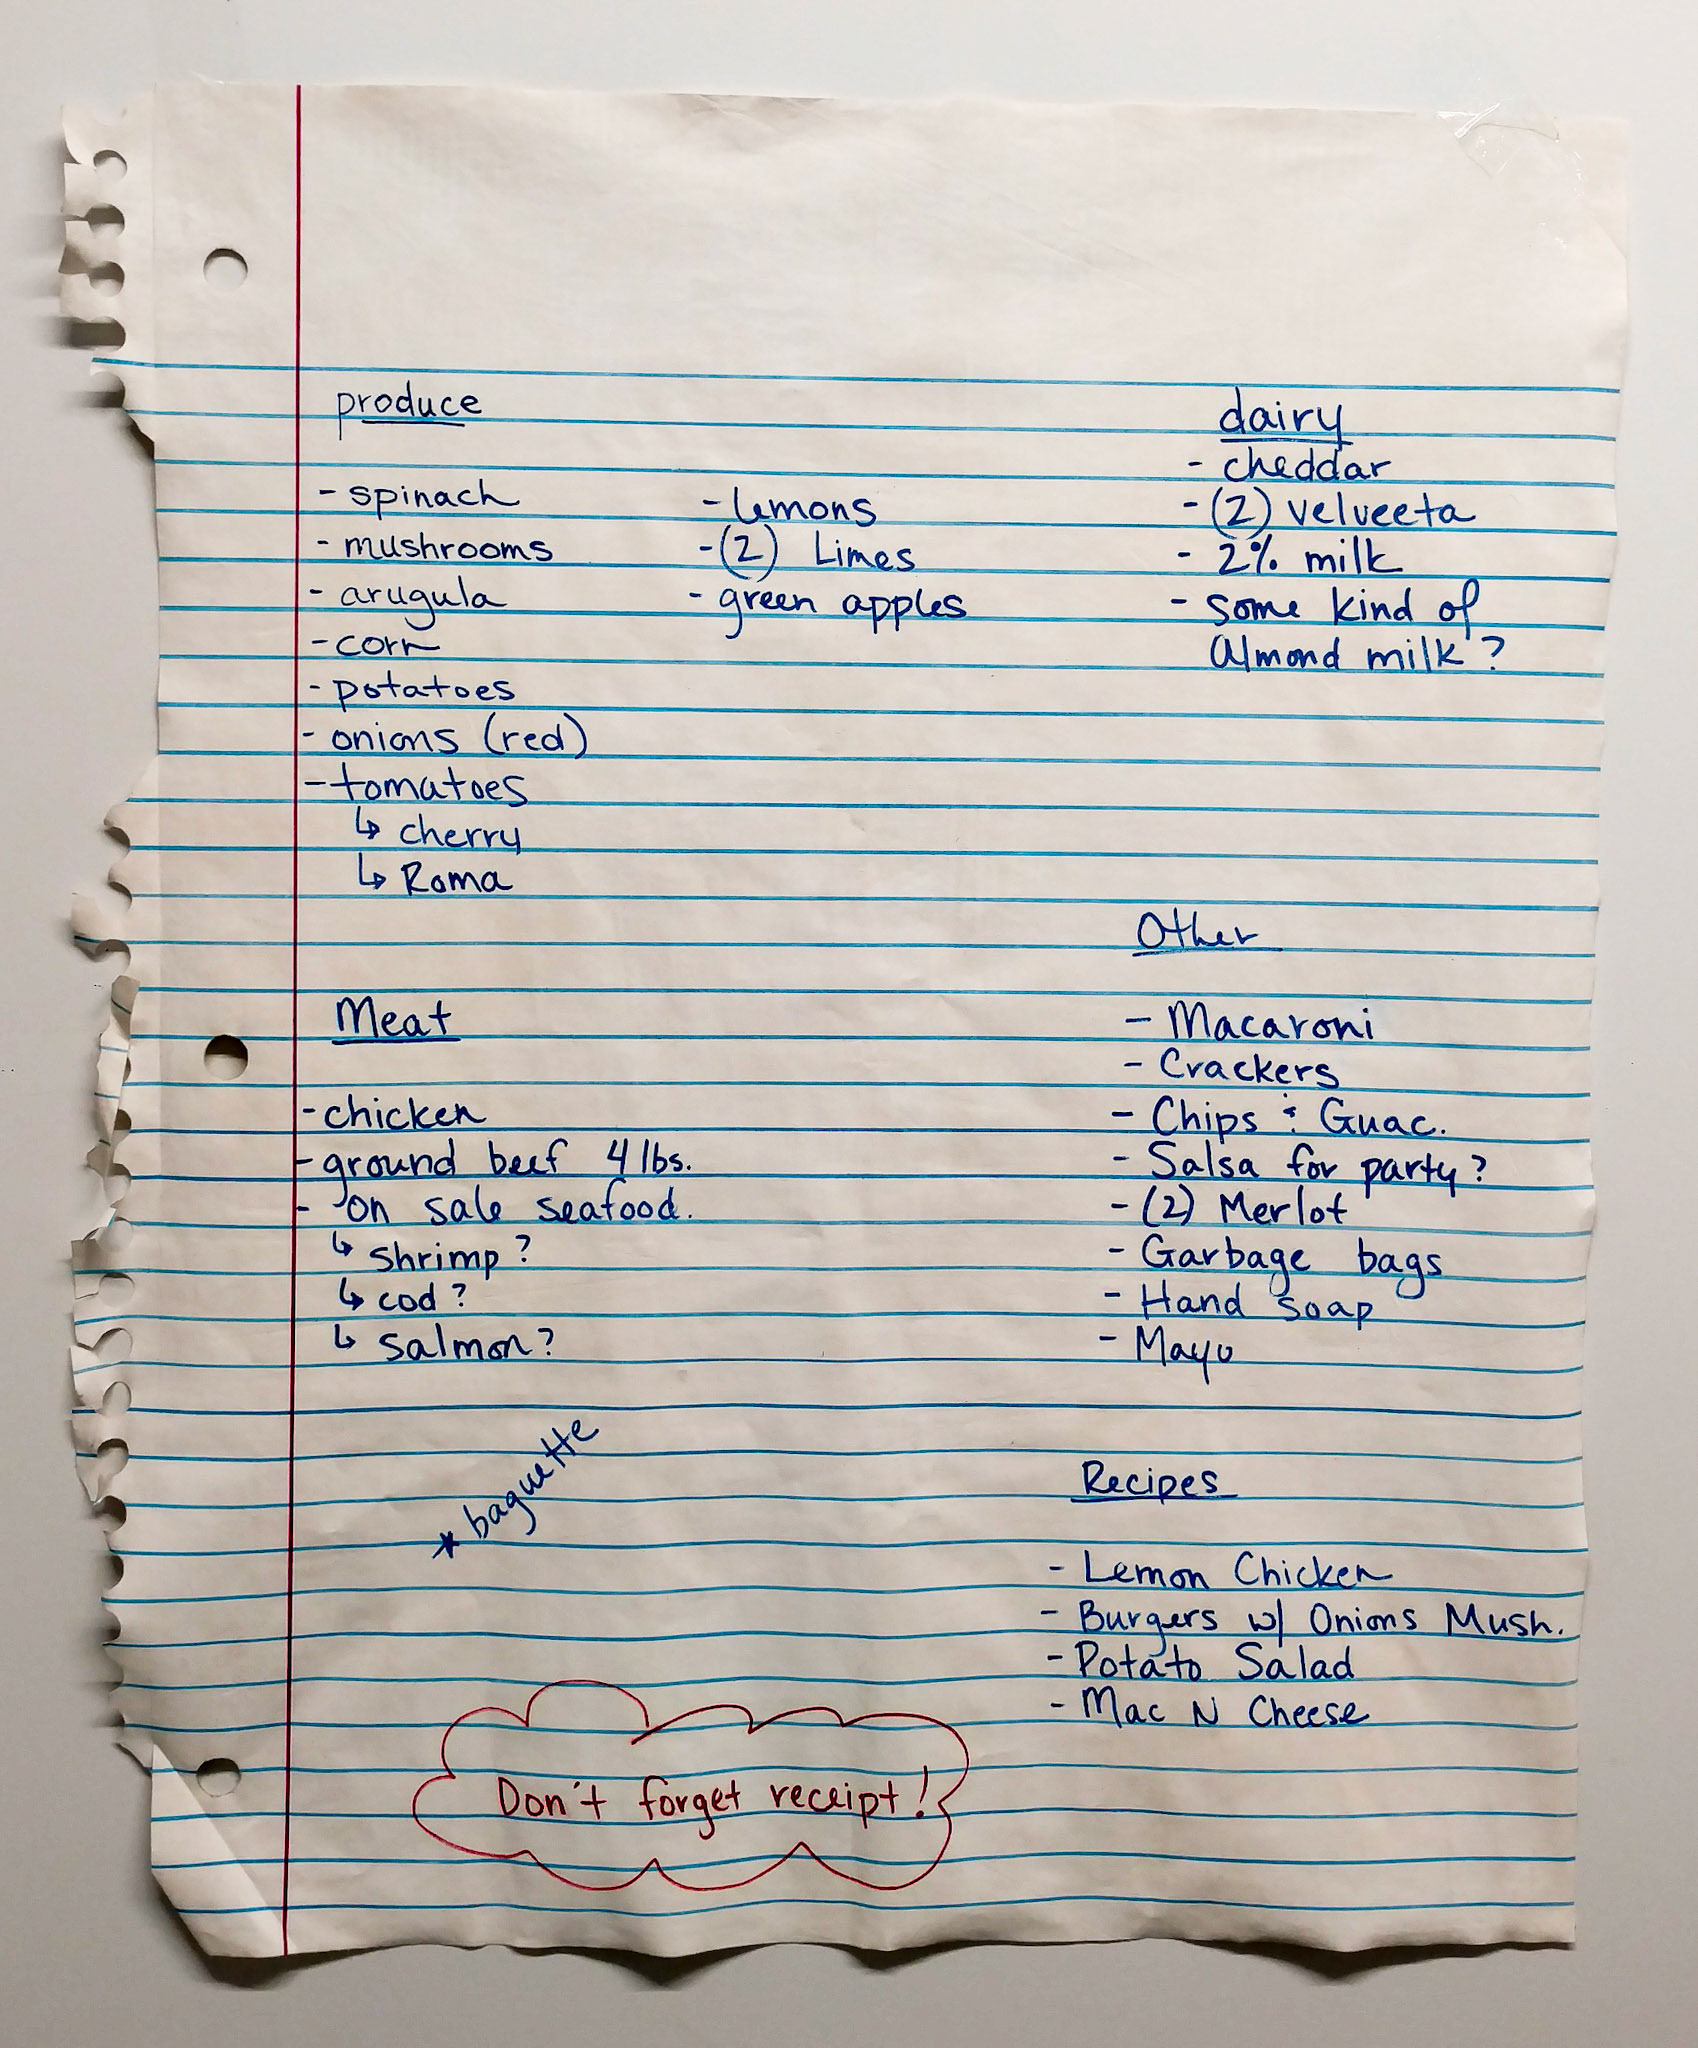 produce
- spinach
- mushrooms
- arugula
- corn
- potatoes
- onions (red)
- tomatoes
↳ cherry
↳ Roma
- lemons
- (2) Limes
- green apples
dairy
- cheddar
- (2) velveeta
- 2% milk
- some kind of
almond milk?
Meat
- chicken
- ground beef 4 lbs.
- on sale seafood.
↳ shrimp?
↳ cod?
↳ salmon?
Other
- Macaroni
- Crackers
- Chips & Guac.
- Salsa for party?
- (2) Merlot
- Garbage bags
- Hand soap
- Mayo
* baguette
Recipes
- Lemon Chicken
- Burgers w/ Onions Mush.
- Potato Salad
- Mac N Cheese
Don't forget receipt!